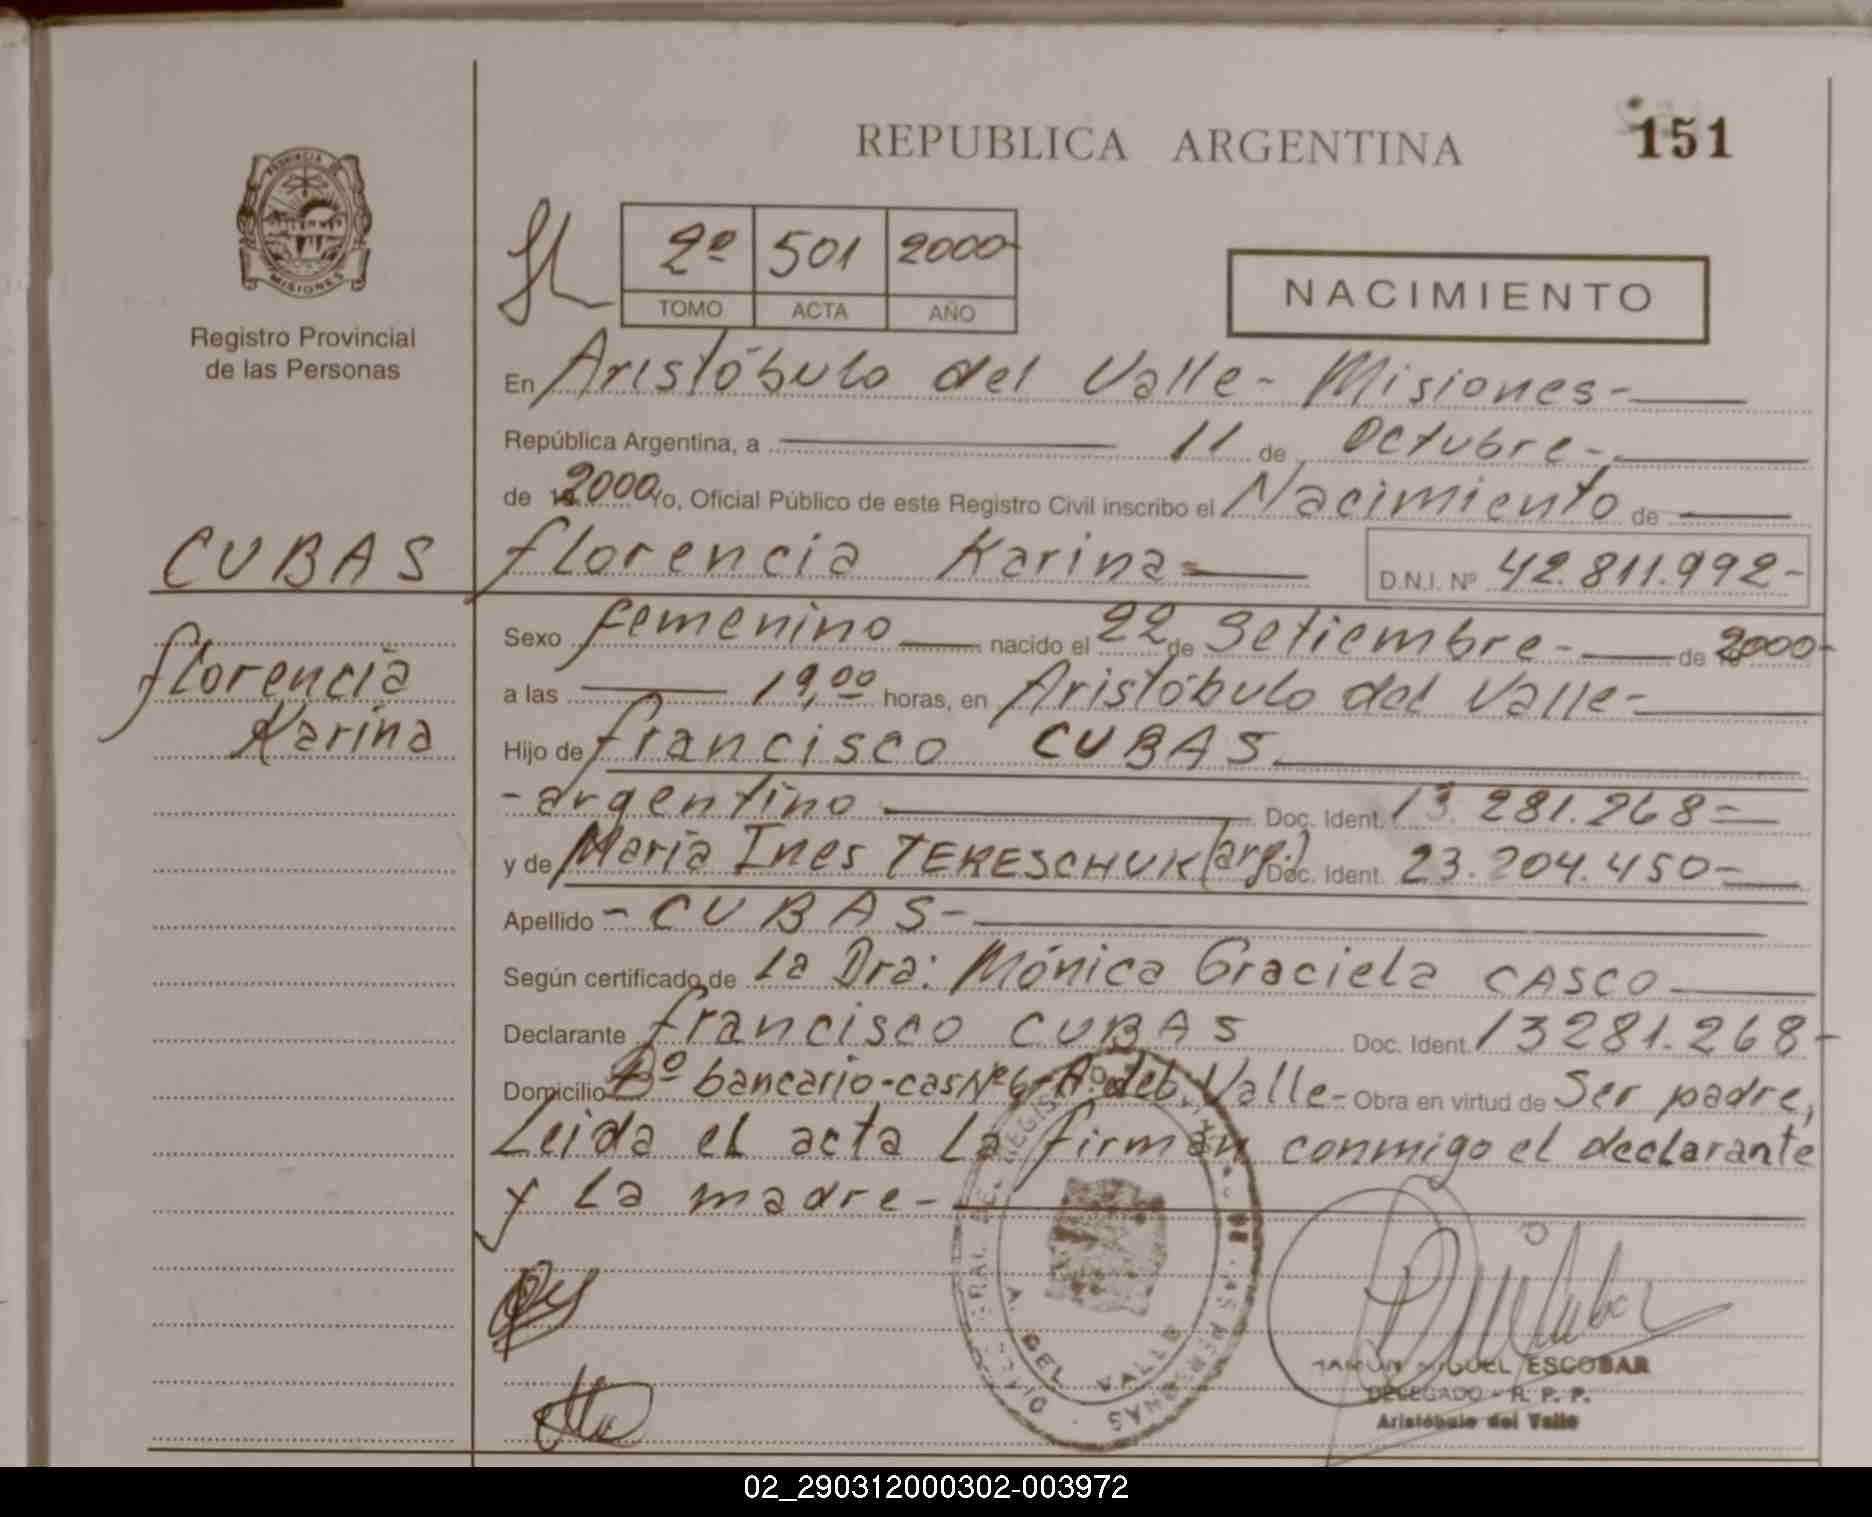 REPUBLICA ARGENTINA
151
PROVINCIA DE
MISIONES
Registro Provincial
de las Personas
2º 501 2000-
TOMO ACTA AÑO
NACIMIENTO
En Aristóbulo del Valle - Misiones -
República Argentina, a 11 de Octubre -
de 2000 Yo, Oficial Público de este Registro Civil inscribo el Nacimiento de
CUBAS
Florencia
Karina
Florencia Karina D.N.I. Nº 42.811.992-
Sexo Femenino nacido el 22 de Setiembre - de 2000-
a las 19,00 horas, en Aristóbulo del Valle -
Hijo de Francisco CUBAS
- argentino Doc. Ident. 13.281.268=
y de María Ines TERESCHUK (arg.) Doc. Ident. 23.204.450-
Apellido - CUBAS -
Según certificado de la Dra: Mónica Graciela CASCO
Declarante Francisco CUBAS Doc. Ident. 13281.268-
Domicilio Bº bancario - cas Nº 6 - A. del Valle - Obra en virtud de Ser padre,
Leida el acta la firman conmigo el declarante
y la madre -
DEL VALLE
MIGUEL ESCOBAR
DELEGADO - R. P. P.
Aristóbulo del Valle
02_290312000302-003972